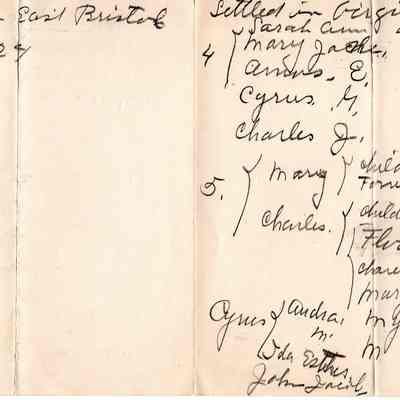 East Bristol
Settled in Virgi
Sarah Ann
4 Mary Jacke,
Amos. E.
Cyrus. G.
Charles J.
5. Mary child
Charles. child
Flo
char
Mar
Cyrus Andra,
m.
Ida Esther,
John Jacob,